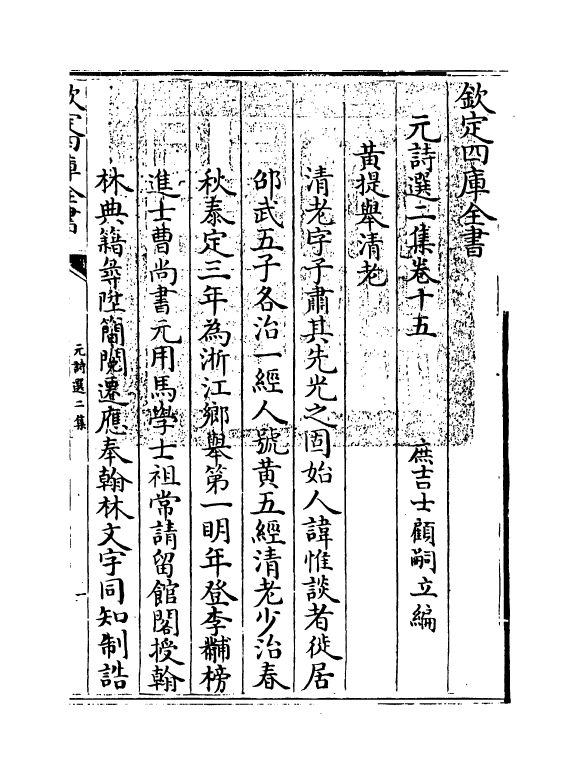 欽定四庫全書
元詩選二集卷十五
庶吉士顧嗣立編
黃提舉清老
清老字子肅其先光之固始人諱惟談者徙居
邵武五子各治一經人號黃五經清老少治春
秋泰定三年為浙江鄉舉第一明年登李黼榜
進士曹尚書元用馬學士祖常請留館閣授翰
林典籍舜陞簡閱遷應奉翰林文字同知制誥
欽定四庫全書
元詩選二集
一